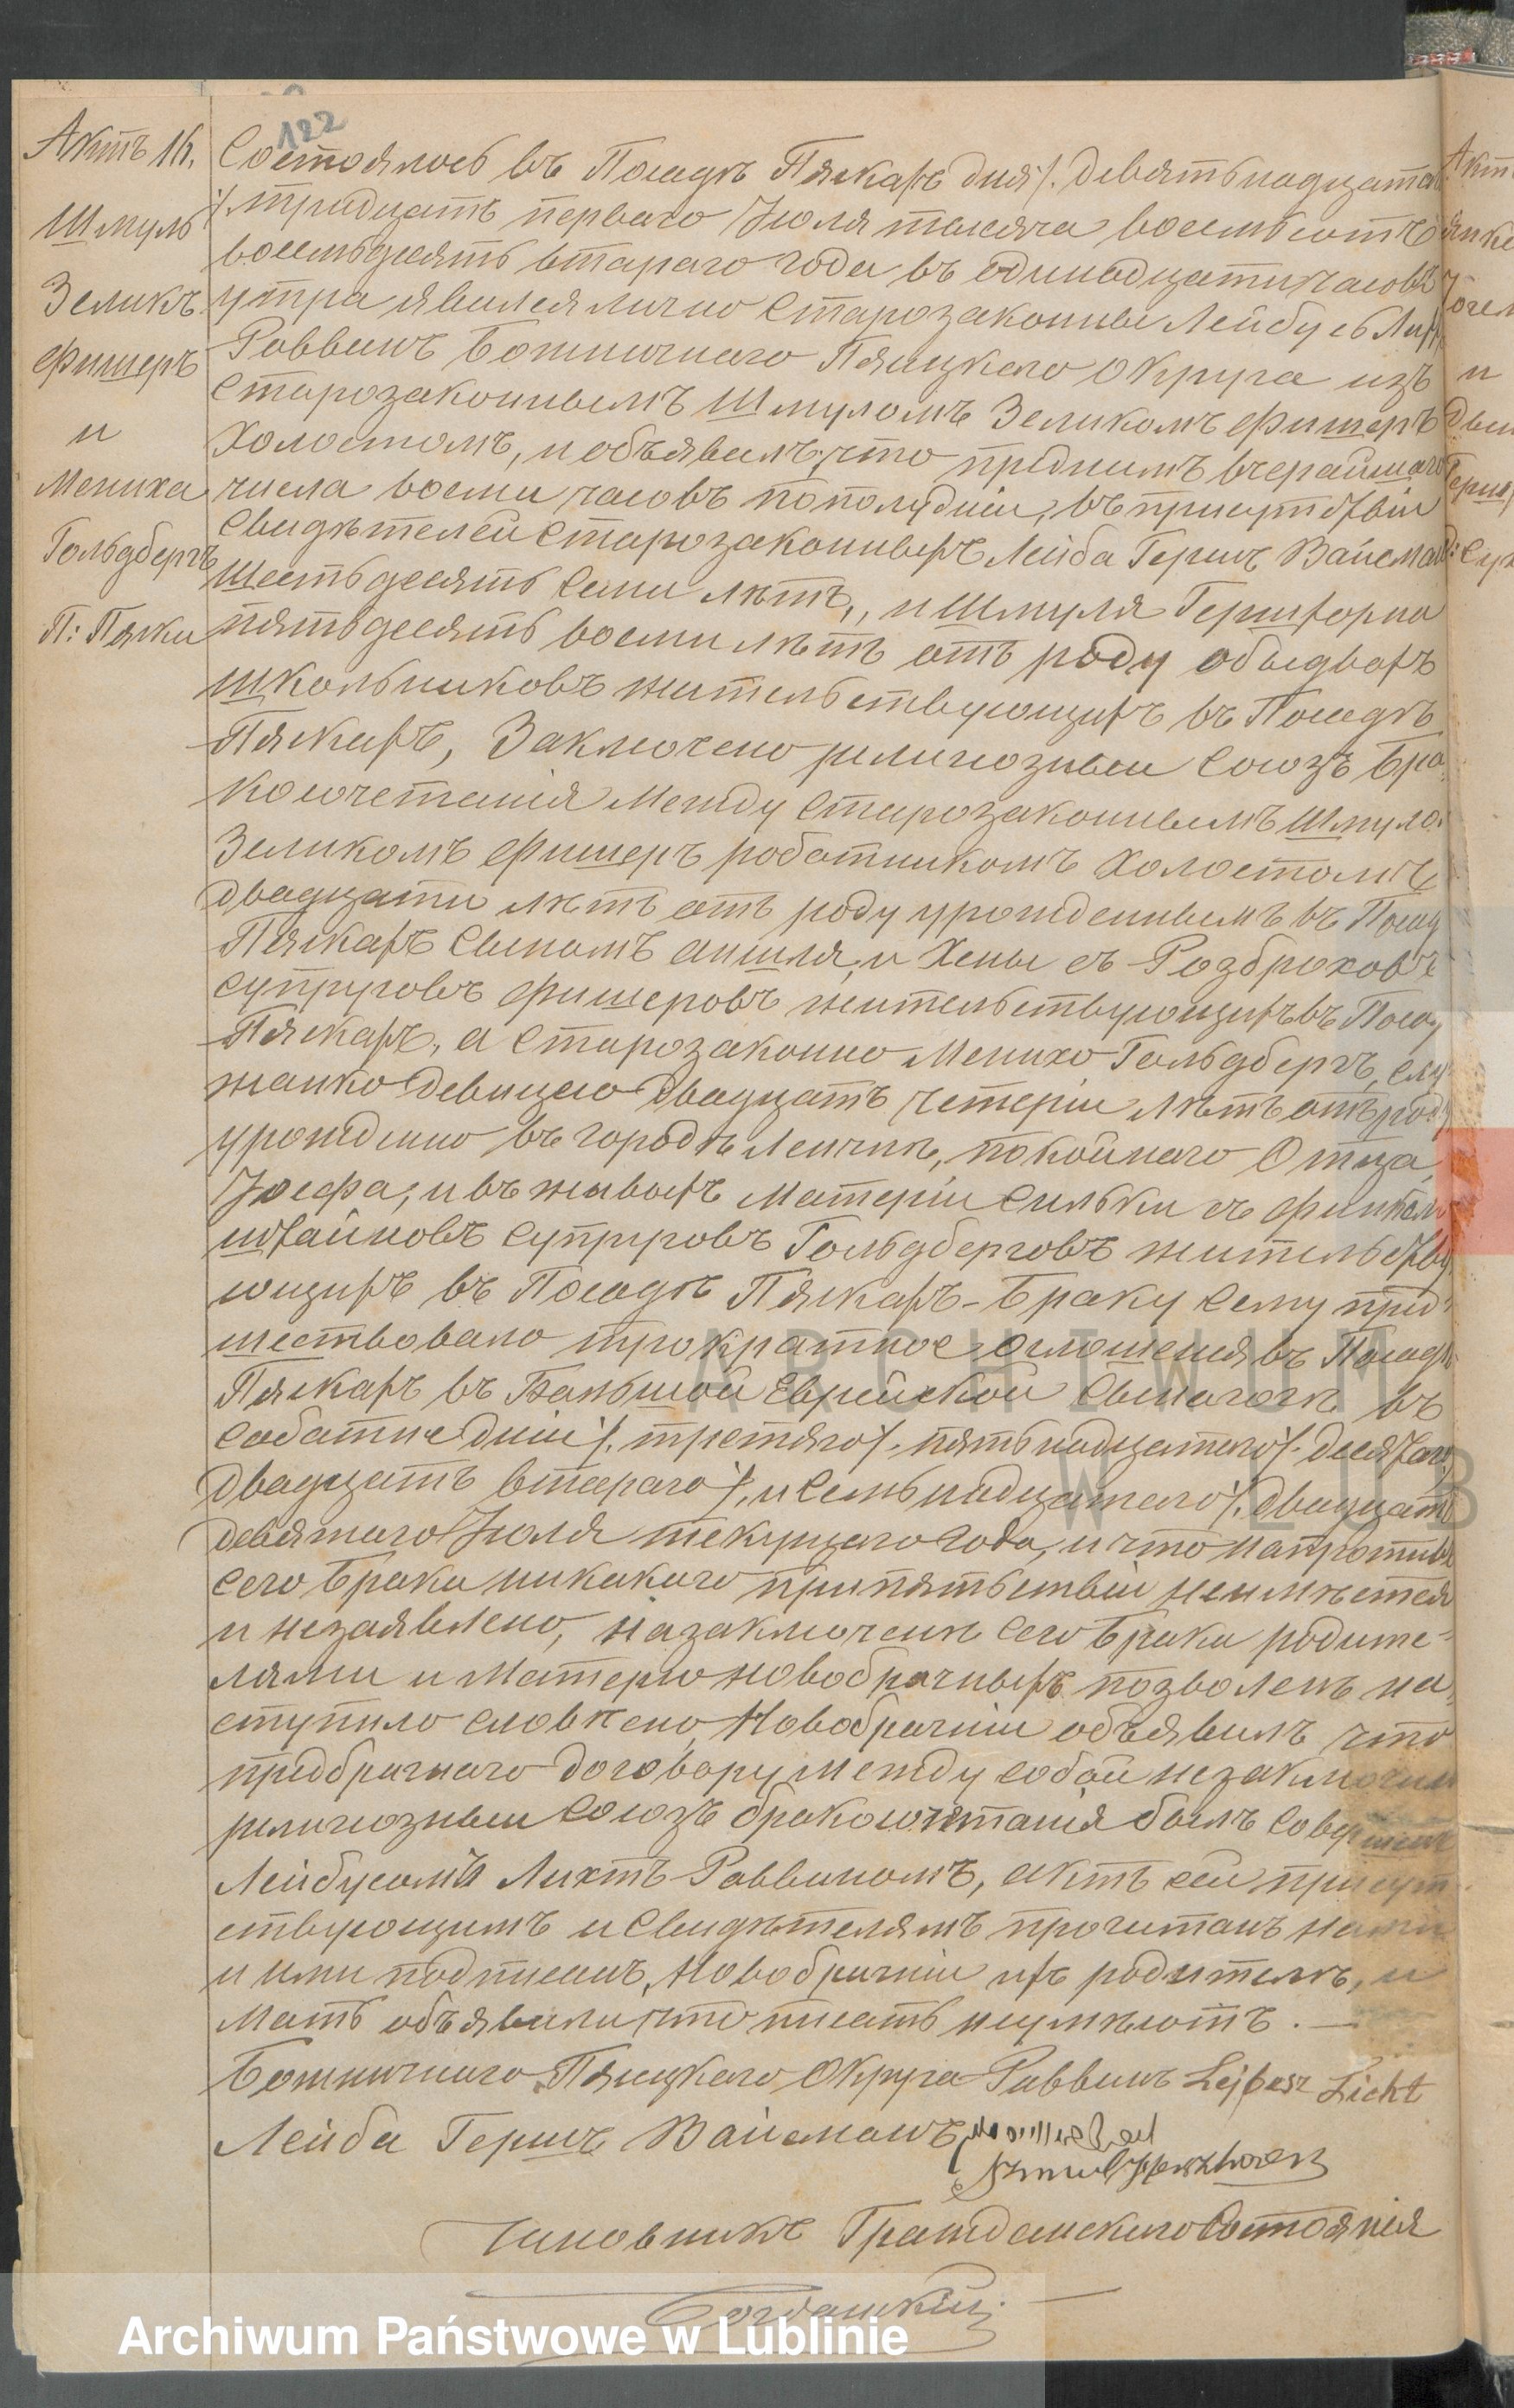 122
Актъ 16.
Шмуль
Зеликъ
Фишеръ
и
Мениха
Гольдбергъ
П: Пяски
Состоялось въ Посадѣ Пяскахъ дня /. девятьнадцата
/. тридцать перваго Іюля тысяча восемьсотъ
восемьдесятъ втараго года въ одинадцати часовъ
утра явился лично Старозаконный Лейбусь Лихт
Раввинъ Божничнаго Пясецкаго Округа изъ
Старозаконнымъ Шмуломъ Зеликомъ Фишеръ
Холостомъ, и объявилъ, что предъ нимъ вчерайшаго
числа восеми часовъ пополудніи, въ присутствіи
Свидѣтелей Старозаконныхъ Лейба Гершъ Вайсман
шестьдесятъ семи лѣтъ, и Шмуля Гершторна
пятьдесятъ восеми лѣтъ отъ роду обыдвохъ
школьниковъ жительствующихъ въ Посадѣ
Пяскахъ, Заключено религіозный Союзъ бра
косочетанія Между Старозаконнымъ Шмуло
Зеликомъ Фишеръ роботникомъ Холостомъ
двадцати лѣтъ отъ роду урожденнымъ въ Посад
Пяскахъ Сыномъ Аншля, и Хены съ Розброховъ
супруговъ Фишеровъ жительствующихъ въ Посад
Пяскахъ, а Старозаконно Менихо Гольдбергъ, слу
жанко девицею двадцать четеріи лѣтъ отъ роду
урожденно въ городѣ Ленчнѣ, покойнаго Отца
Іосефа, и въ живыхъ Матеріи Сильки съ Финкель
штайновъ супруговъ Гольдберговъ жительству
ющихъ въ Посадѣ Пяскахъ - Браку сему пред
шествовало трократное оглошенія въ Посадѣ
Пяскахъ въ Божьшой Еврейской Сынагогѣ въ
соботные дніи /. третяго /. пятьнадцатого /. десятаго
двадцать втараго /, и семьнадцатаго /. двадцать
девятаго Іюля текущаго года, и что напротивъ
сего Брака никакаго припятьствіи неимѣется
и незаявлено, на заключенѣ сего Брака родите-
лями и Матерю новобрачныхъ позволень на
ступило словѣсно, Новобрачніи объявилъ что
предбрачнаго договору между собой незаключили
религіозный союзъ бракосочѣтанія былъ совершенъ
Лейбусомъ Лихтъ Раввиномъ, актъ сей присут
ствующимъ и Свидѣтелямъ прочитанъ нами
и ими подписанъ, Новобрачніи ихъ родителѣ, и
Мать объявили, что писать неумѣютъ. —
Божничнаго Пясецкаго Округа Раввинъ Lejbusz Licht
Лейба Гершъ Вайсманъ
Szmul Herszhorn
Чиновникъ Гражданскаго Состоянія
ARCHIWUM
W LUB
Archiwum Państwowe w Lublinie